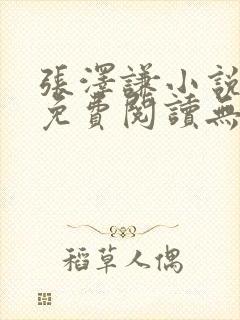 張澤謙小說
免費閱讀無
稻草人偶